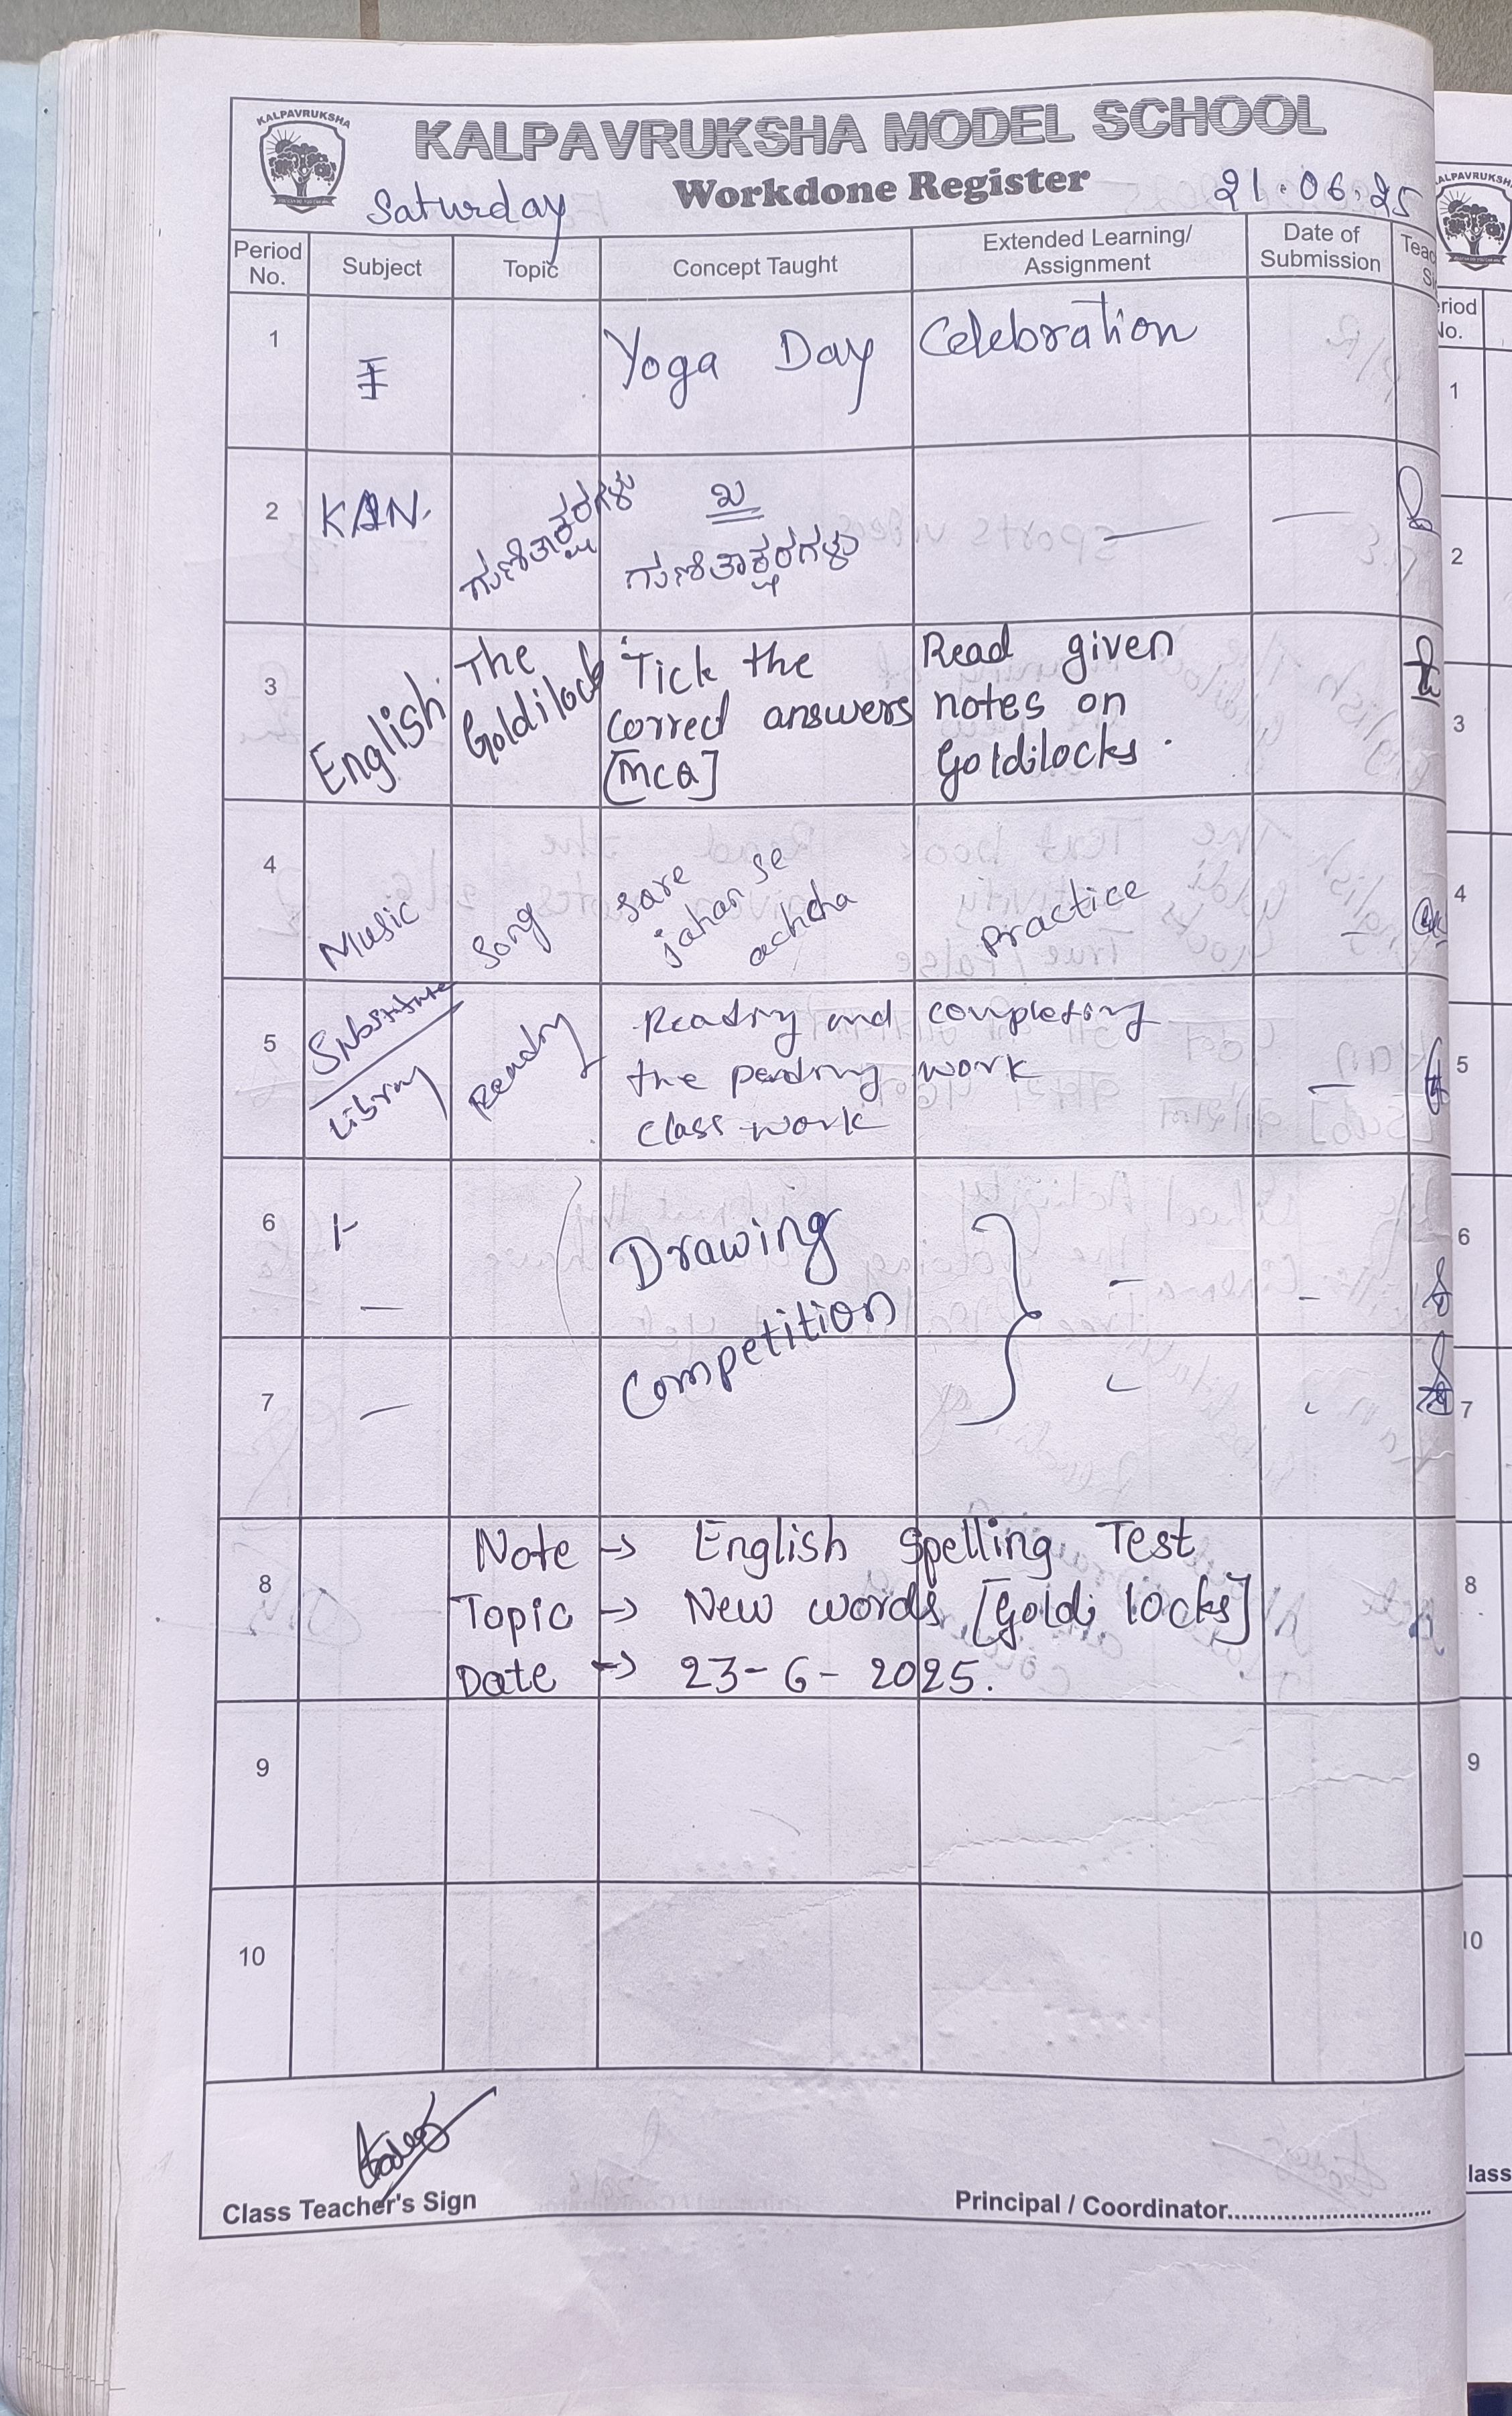 KALPAVRUKSHA
KALPAVRUKSHA MODEL SCHOOL
Workdone Register
Saturday
21.06.25
Period No. Subject Topic Concept Taught Extended Learning/ Assignment Date of Submission
1 Yoga Day Celebration
2 KAN. ಗುಣಿತಾಕ್ಷರಗಳು ಖ — —
ಗುಣಿತಾಕ್ಷರಗಳು
3 English. The Goldilock Tick the Read given
correct answers notes on
[MCQ] Goldilocks.
4 Music Song Sare jahan se achcha practice –
5 Substitute Reading Reading and completing
Library the pending work –
class work
6 – Drawing – –
7 – Competition
8 Note → English Spelling Test
Topic → New words [Goldi locks]
Date → 23-6-2025.
9
10
Class Teacher's Sign
Principal / Coordinator
KALPAVRUKSH
eriod
No.
1
2
3
4
5
6
7
8
9
10
lass